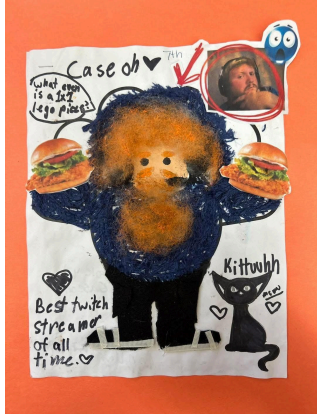 Case oh
7th
what even
is a 1x1
lego piece?
Kittuuhh
meow
Best twitch
streamer
of all
time.